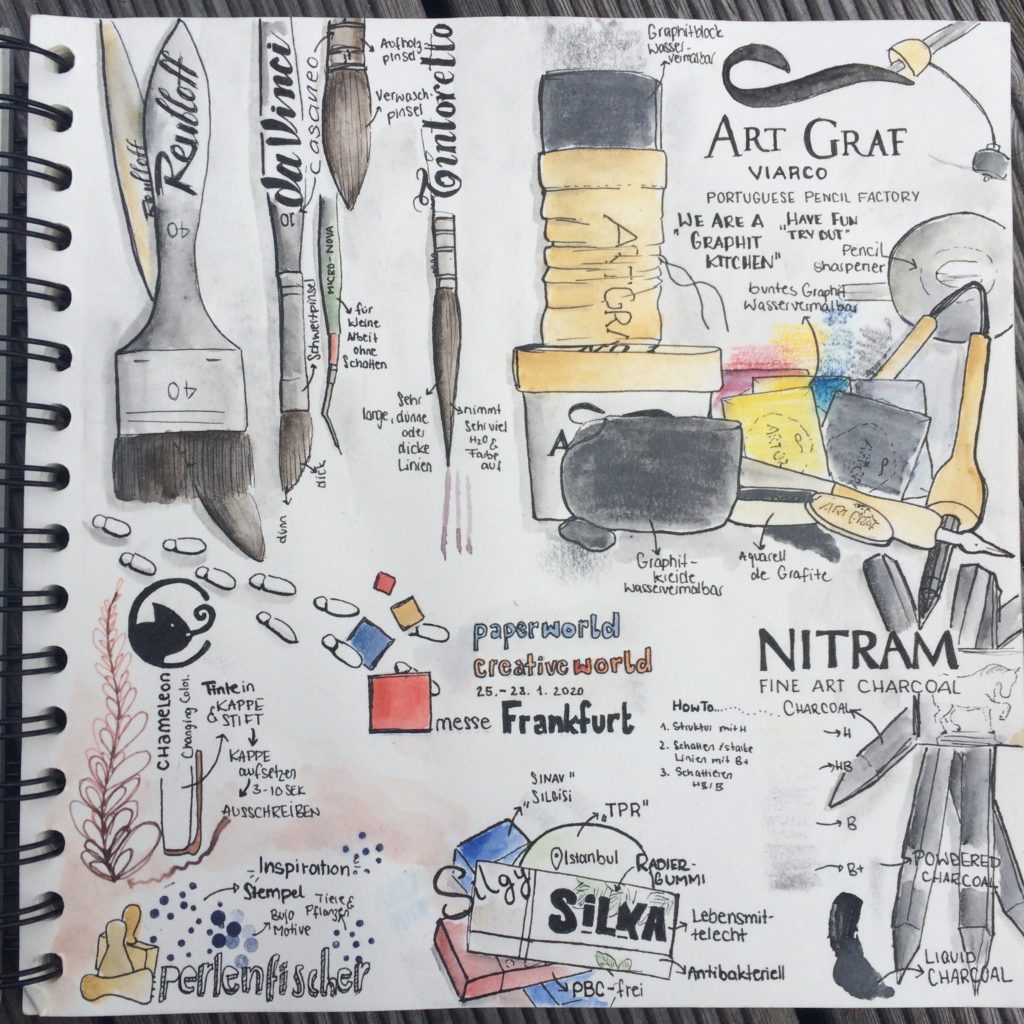 Renlloff
Renlloff
40
40
da Vinci
Casaneo
10
Aufholz
pinsel
Verwasch-
pinsel
Tintoretto
MICRO-NOVA
Schwertpinsel
für
kleine
Arbeit
ohne
Schatten
dünn
dick
Sehr
lange, dünne
oder
dicke
Linien
nimmt
Sehr viel
H2O &
Farbe
auf
Graphitblock
Wasser-
vermalbar
ART GRAF
VIARCO
PORTUGUESE PENCIL FACTORY
"WE ARE A
GRAPHIT
KITCHEN"
"HAVE FUN
TRY OUT"
Pencil
sharpener
buntes Graphit
Wasservermalbar
ARTGRA
ART GRAF
Graphit-
kreide
wasservermalbar
Aquarell
de Grafite
CHAMELEON
Changing Color.
Tinte in
KAPPE
& STIFT
KAPPE
aufsetzen
3-10 SEK
AUSSCHREIBEN
paperworld
creativeworld
25.-28.1.2020
messe Frankfurt
NITRAM
FINE ART CHARCOAL
CHARCOAL
HowTo...........
1. Struktur mit H
2. Schatten/starke
Linien mit B+
3. Schattieren
HB/B
H
HB
B
B+
POWDERED
CHARCOAL
LIQUID
CHARCOAL
Inspiration
Stempel
Tiere &
Pflanzen
Bujo
Motive
perlenfischer
"SINAV
SILGISI"
"TPR"
Istanbul
RADIER-
GUMMI
Silgy
SILKA
Lebensmit-
telecht
Antibakteriell
PBC-frei